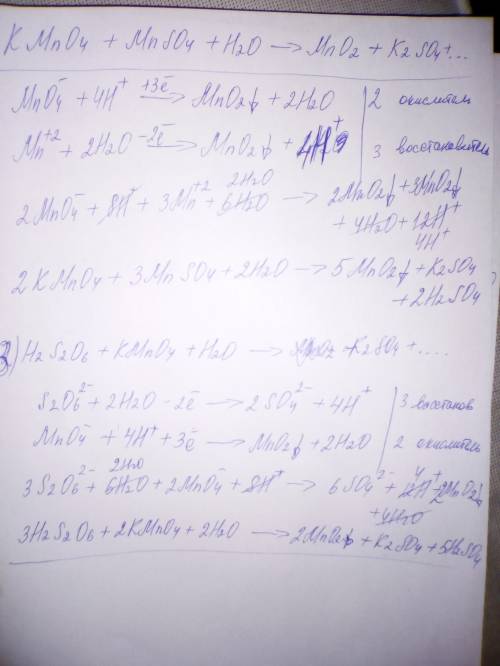 KMnO4 + MnSO4 + H2O → MnO2 + K2SO4 + ...
MnO4⁻ + 4H⁺ +3ē → MnO2↓ + 2H2O | 2 окислитель
Mn⁺² + 2H2O -2ē → MnO2↓ + 4H⁺ | 3 восстановитель
2H2O
2MnO4⁻ + 8H⁺ + 3Mn⁺² + 6H2O → 2MnO2↓ + 3MnO2↓
+ 4H2O + 12H⁺
4H⁺
2KMnO4 + 3MnSO4 + 2H2O → 5MnO2↓ + K2SO4
+ 2H2SO4
2) H2S2O6 + KMnO4 + H2O → MnO2 + K2SO4 + ....
S2O6²⁻ + 2H2O - 2ē → 2SO4²⁻ + 4H⁺ | 3 восстанов
MnO4⁻ + 4H⁺ + 3ē → MnO2↓ + 2H2O | 2 окислитель
2H2O 4
3S2O6²⁻ + 6H2O + 2MnO4⁻ + 8H⁺ → 6SO4²⁻ + 12H⁺ + 2MnO2↓
+ 4H2O
3H2S2O6 + 2KMnO4 + 2H2O → 2MnO2↓ + K2SO4 + 5H2SO4